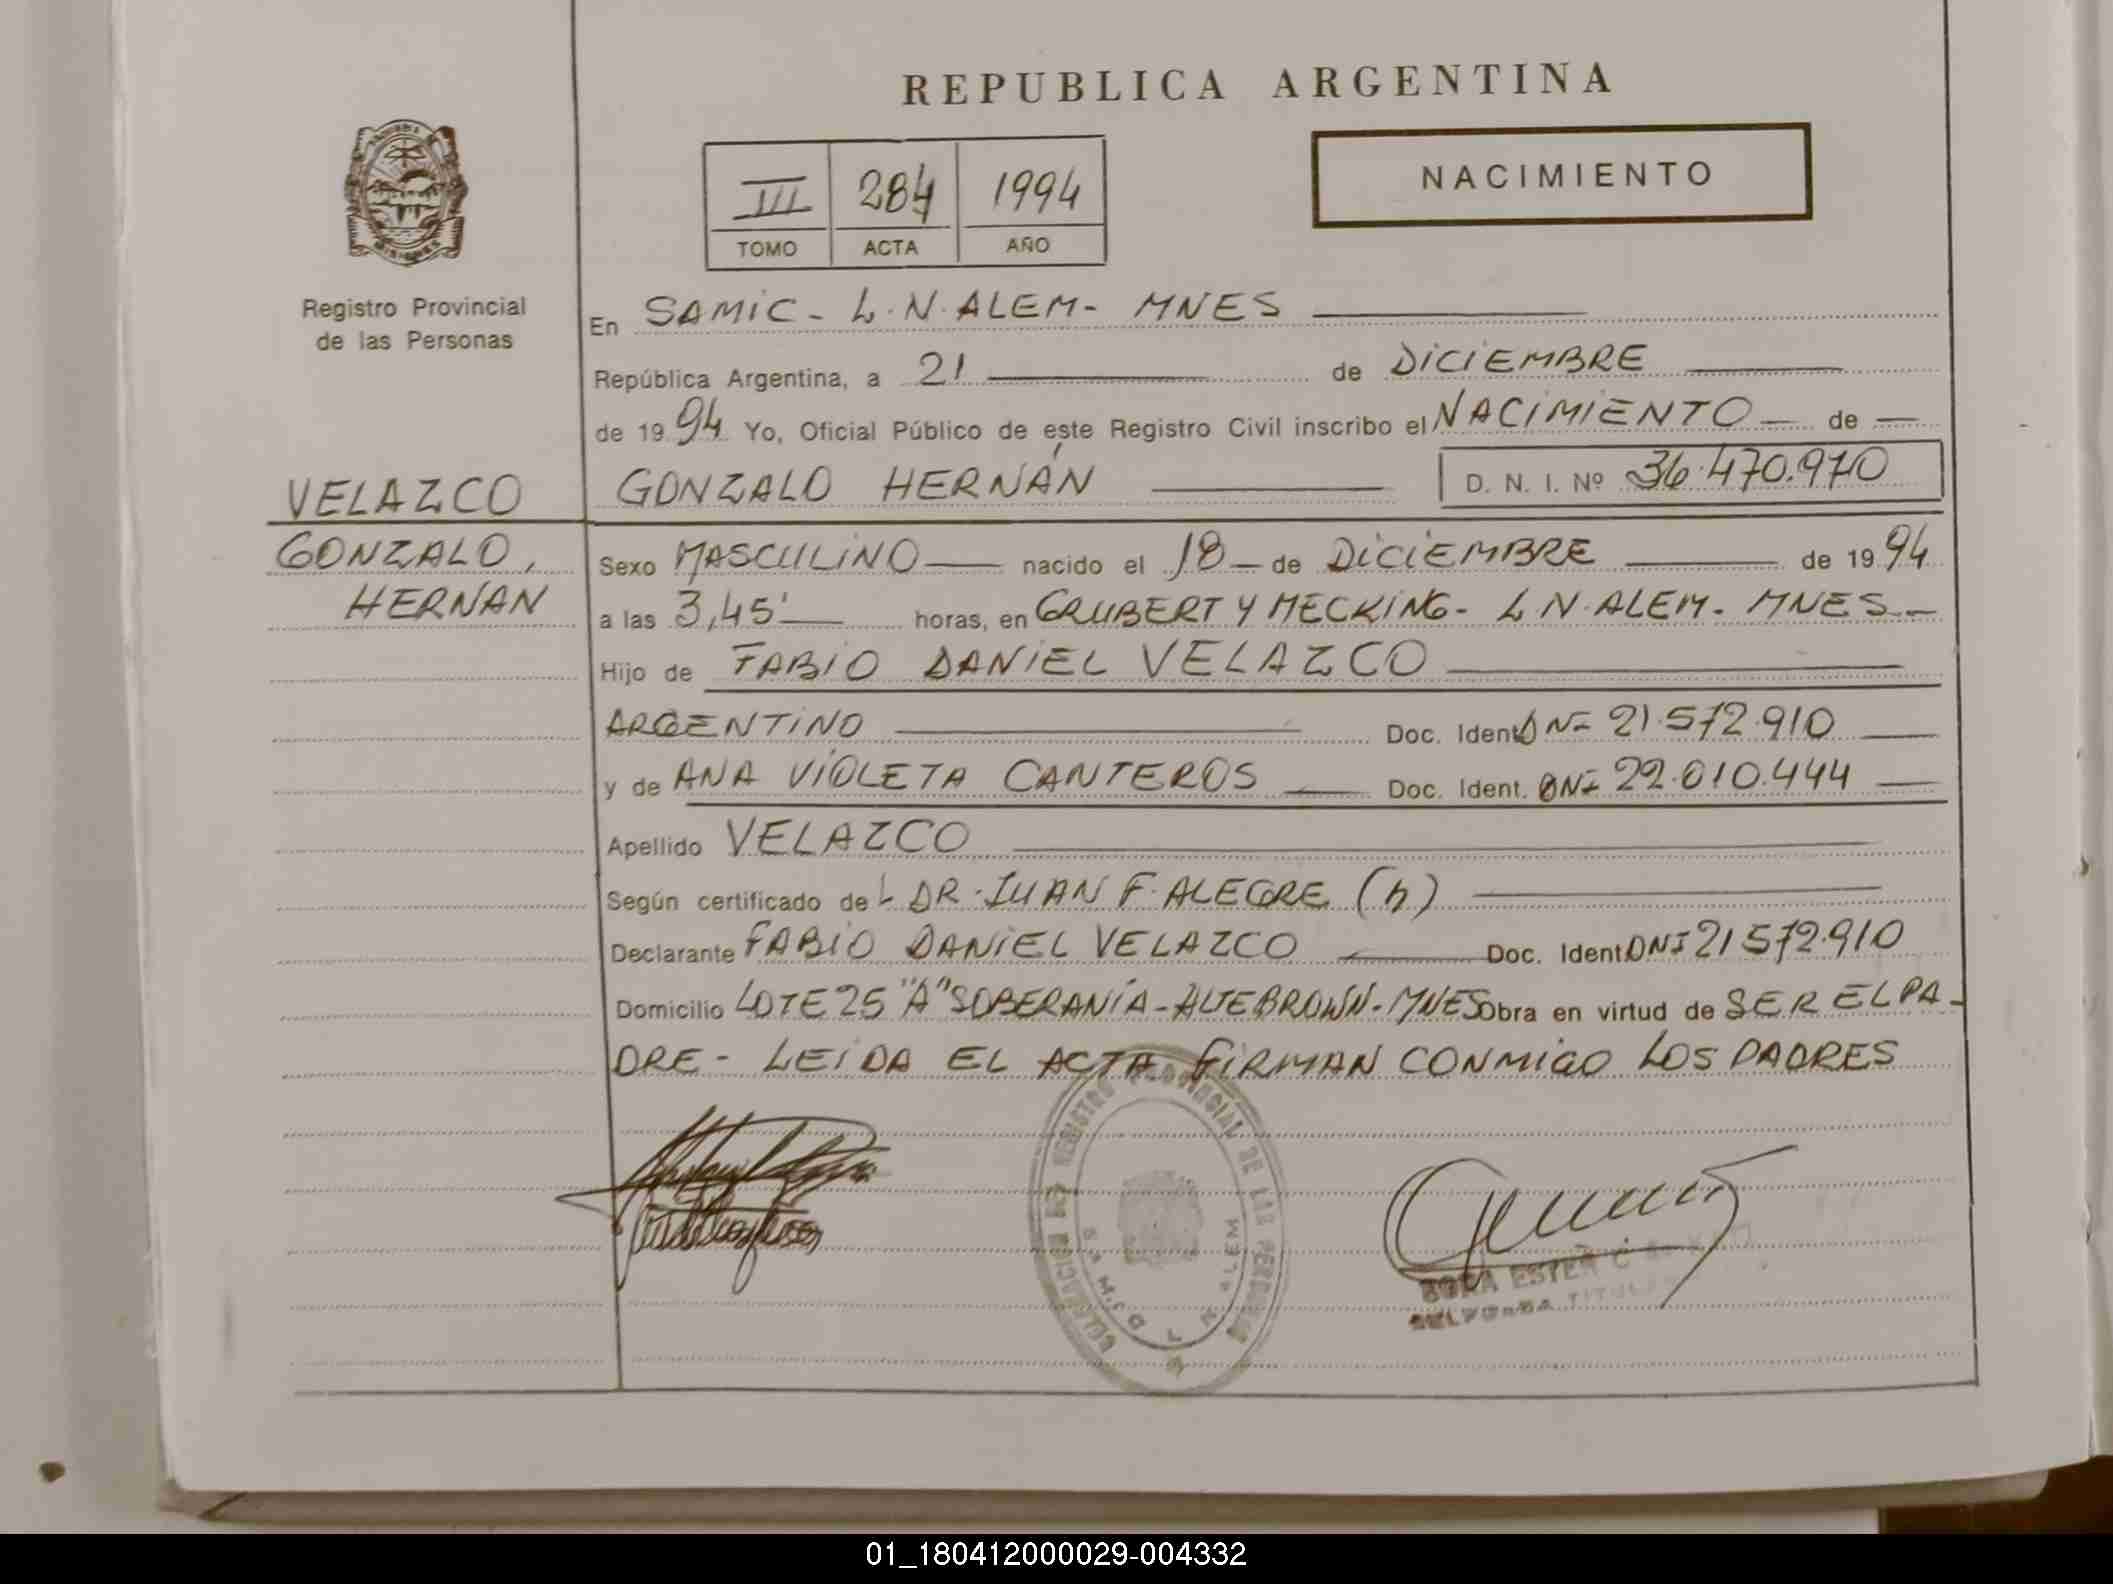 REPUBLICA ARGENTINA
NACIMIENTO
III 284 1994
TOMO ACTA AÑO
MISIONES
Registro Provincial
de las Personas
En SAMIC - L.N. ALEM - MNES
República Argentina, a 21 de DICIEMBRE
de 1994 Yo, Oficial Público de este Registro Civil inscribo el NACIMIENTO de
VELAZCO
GONZALO HERNÁN D. N. I. Nº 36.470.970
GONZALO,
HERNAN
Sexo MASCULINO nacido el 18 de DICIEMBRE de 1994
a las 3,45' horas, en GRUBERT Y MECKING - L N. ALEM - MNES -
Hijo de FABIO DANIEL VELAZCO
ARGENTINO Doc. Ident DNI 21.572.910
y de ANA VIOLETA CANTEROS Doc. Ident. DNI 22.010.444
Apellido VELAZCO
Según certificado del DR. JUAN F. ALEGRE (h)
Declarante FABIO DANIEL VELAZCO Doc. Ident DNI 21572.910
Domicilio LOTE 25 "A" SOBERANÍA - ALTE BROWN - MNES Obra en virtud de SER EL PA-
DRE - LEIDA EL ACTA FIRMAN CONMIGO LOS PADRES
REGISTRO PROVINCIAL DE LAS PERSONAS
L. N. ALEM
ESTER
TITULAR
01_180412000029-004332